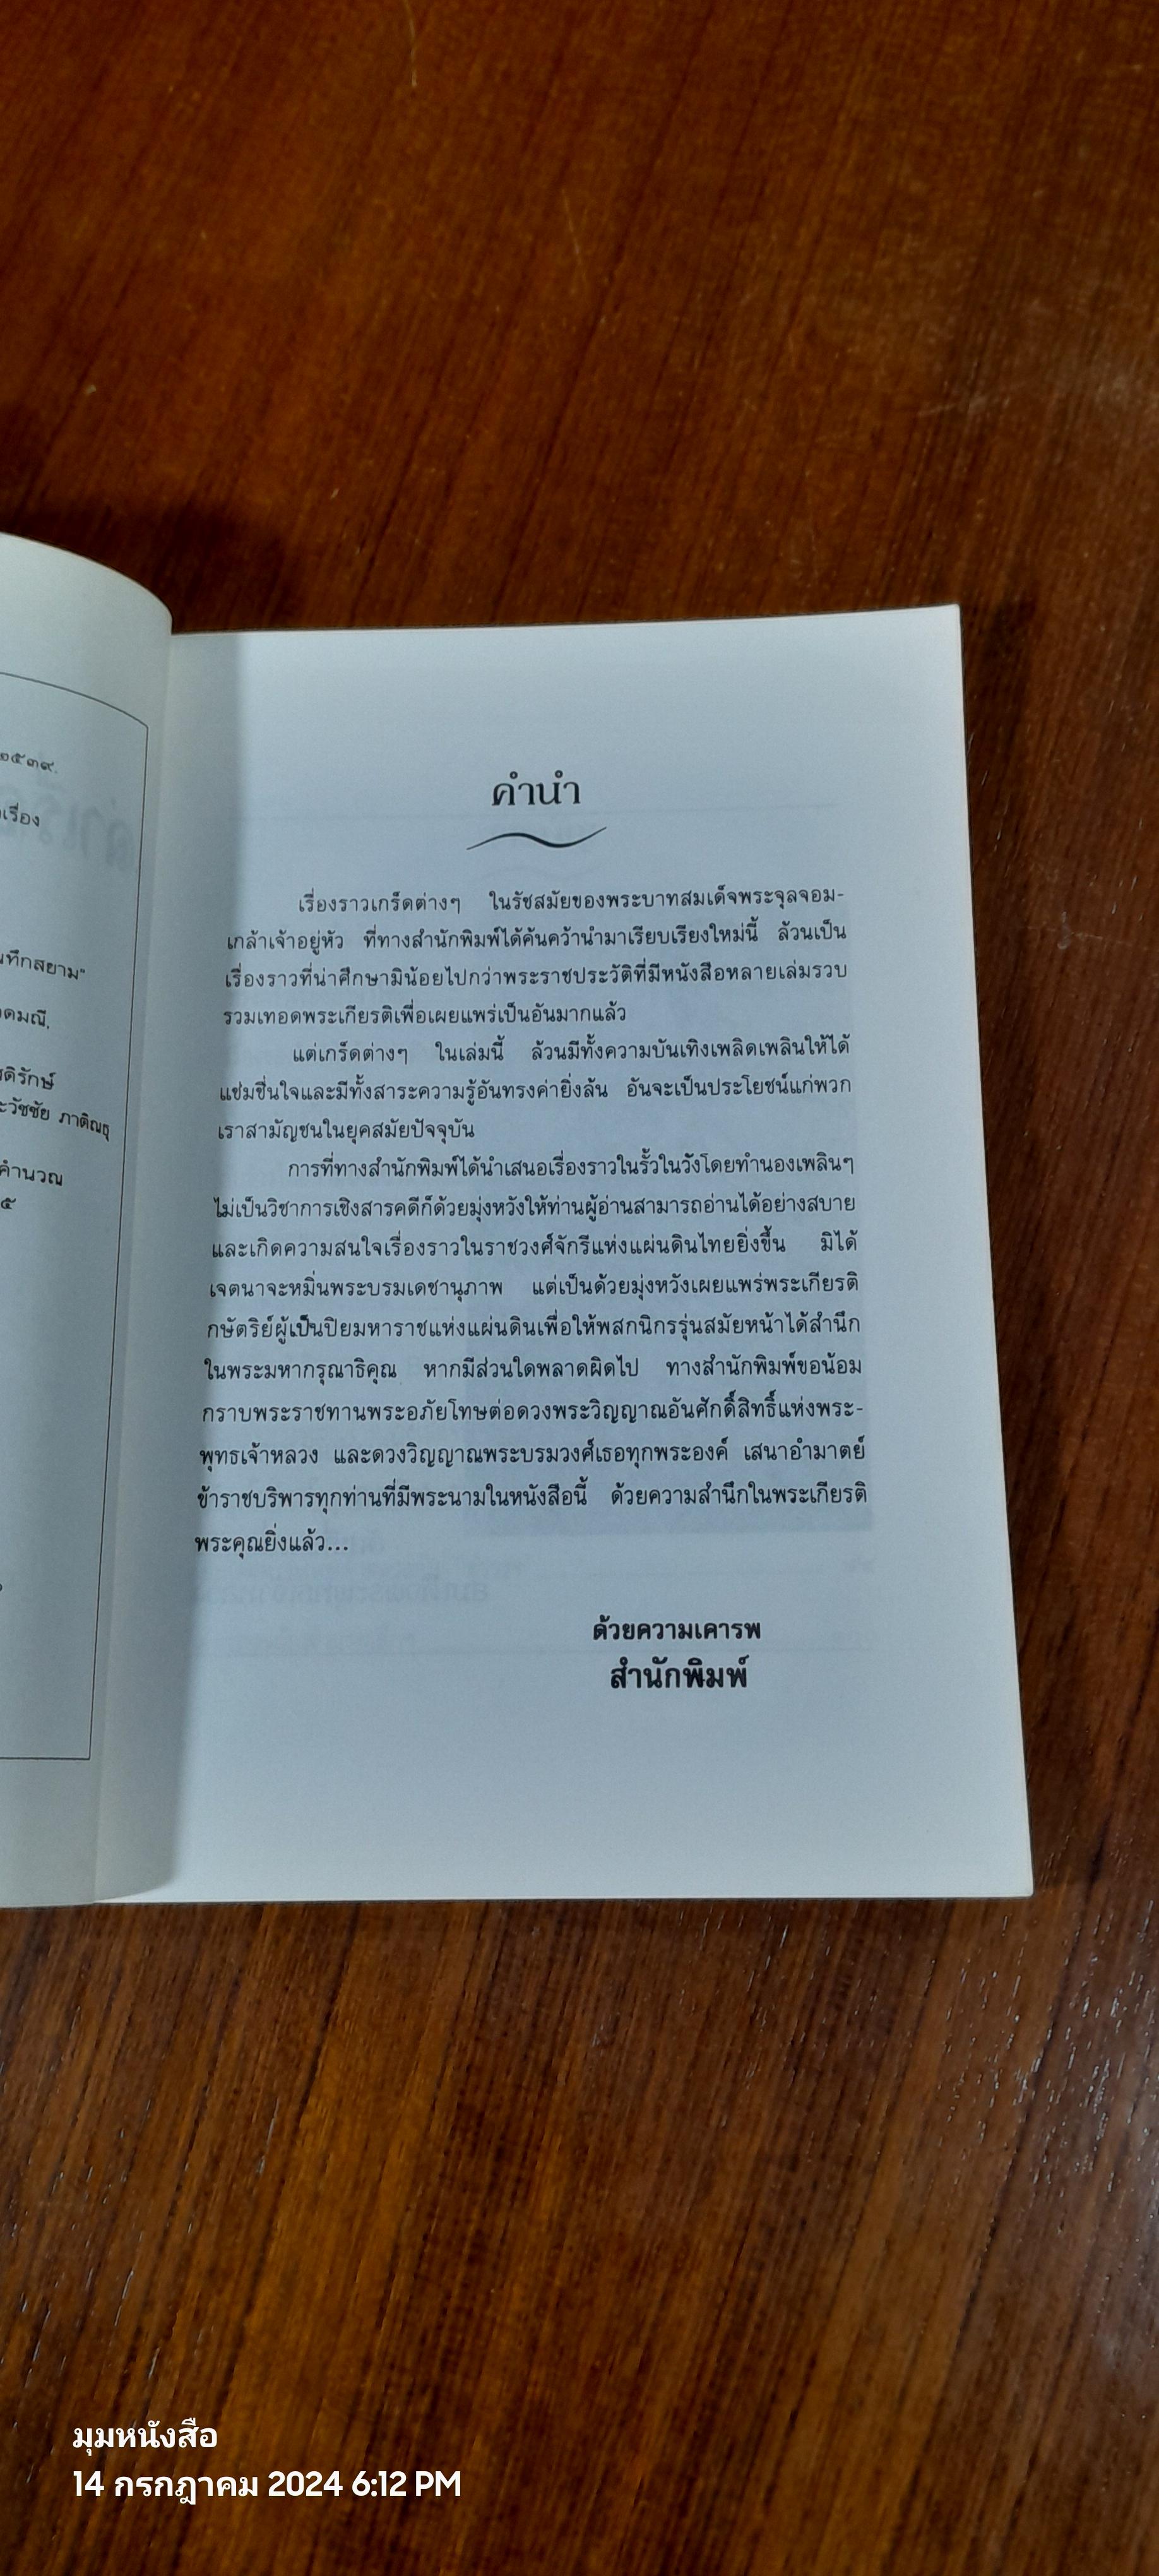 ๒๕๓๙.
เรื่อง
นทึกสยาม"
ดมณี,
ภาติณฐ
คำนวณ
๕
คำนำ
เรื่องราวเกร็ดต่างๆ ในรัชสมัยของพระบาทสมเด็จพระจุลจอม-
เกล้าเจ้าอยู่หัว ที่ทางสำนักพิมพ์ได้ค้นคว้านำมาเรียบเรียงใหม่นี้ ล้วนเป็น
เรื่องราวที่น่าศึกษามิน้อยไปกว่าพระราชประวัติที่มีหนังสือหลายเล่มรวบ
รวมเทอดพระเกียรติเพื่อเผยแพร่เป็นอันมากแล้ว
แต่เกร็ดต่างๆ ในเล่มนี้ ล้วนมีทั้งความบันเทิงเพลิดเพลินให้ได้
แช่มชื่นใจและมีทั้งสาระความรู้อันทรงค่ายิ่งล้น อันจะเป็นประโยชน์แก่พวก
เราสามัญชนในยุคสมัยปัจจุบัน
การที่ทางสำนักพิมพ์ได้นำเสนอเรื่องราวในรั้วในวังโดยทำนองเพลินๆ
ไม่เป็นวิชาการเชิงสารคดีก็ด้วยมุ่งหวังให้ท่านผู้อ่านสามารถอ่านได้อย่างสบาย
และเกิดความสนใจเรื่องราวในราชวงศ์จักรีแห่งแผ่นดินไทยยิ่งขึ้น มิได้
เจตนาจะหมิ่นพระบรมเดชานุภาพ แต่เป็นด้วยมุ่งหวังเผยแพร่พระเกียรติ
กษัตริย์ผู้เป็นปิยมหาราชแห่งแผ่นดินเพื่อให้พสกนิกรรุ่นสมัยหน้าได้สำนึก
ในพระมหากรุณาธิคุณ หากมีส่วนใดพลาดผิดไป ทางสำนักพิมพ์ขอน้อม
กราบพระราชทานพระอภัยโทษต่อดวงพระวิญญาณอันศักดิ์สิทธิ์แห่งพระ-
พุทธเจ้าหลวง และดวงวิญญาณพระบรมวงศ์เธอทุกพระองค์ เสนาอำมาตย์
ข้าราชบริพารทุกท่านที่มีพระนามในหนังสือนี้ ด้วยความสำนึกในพระเกียรติ
พระคุณยิ่งแล้ว...
ด้วยความเคารพ
สำนักพิมพ์
มุมหนังสือ
14 กรกฎาคม 2024 6:12 PM